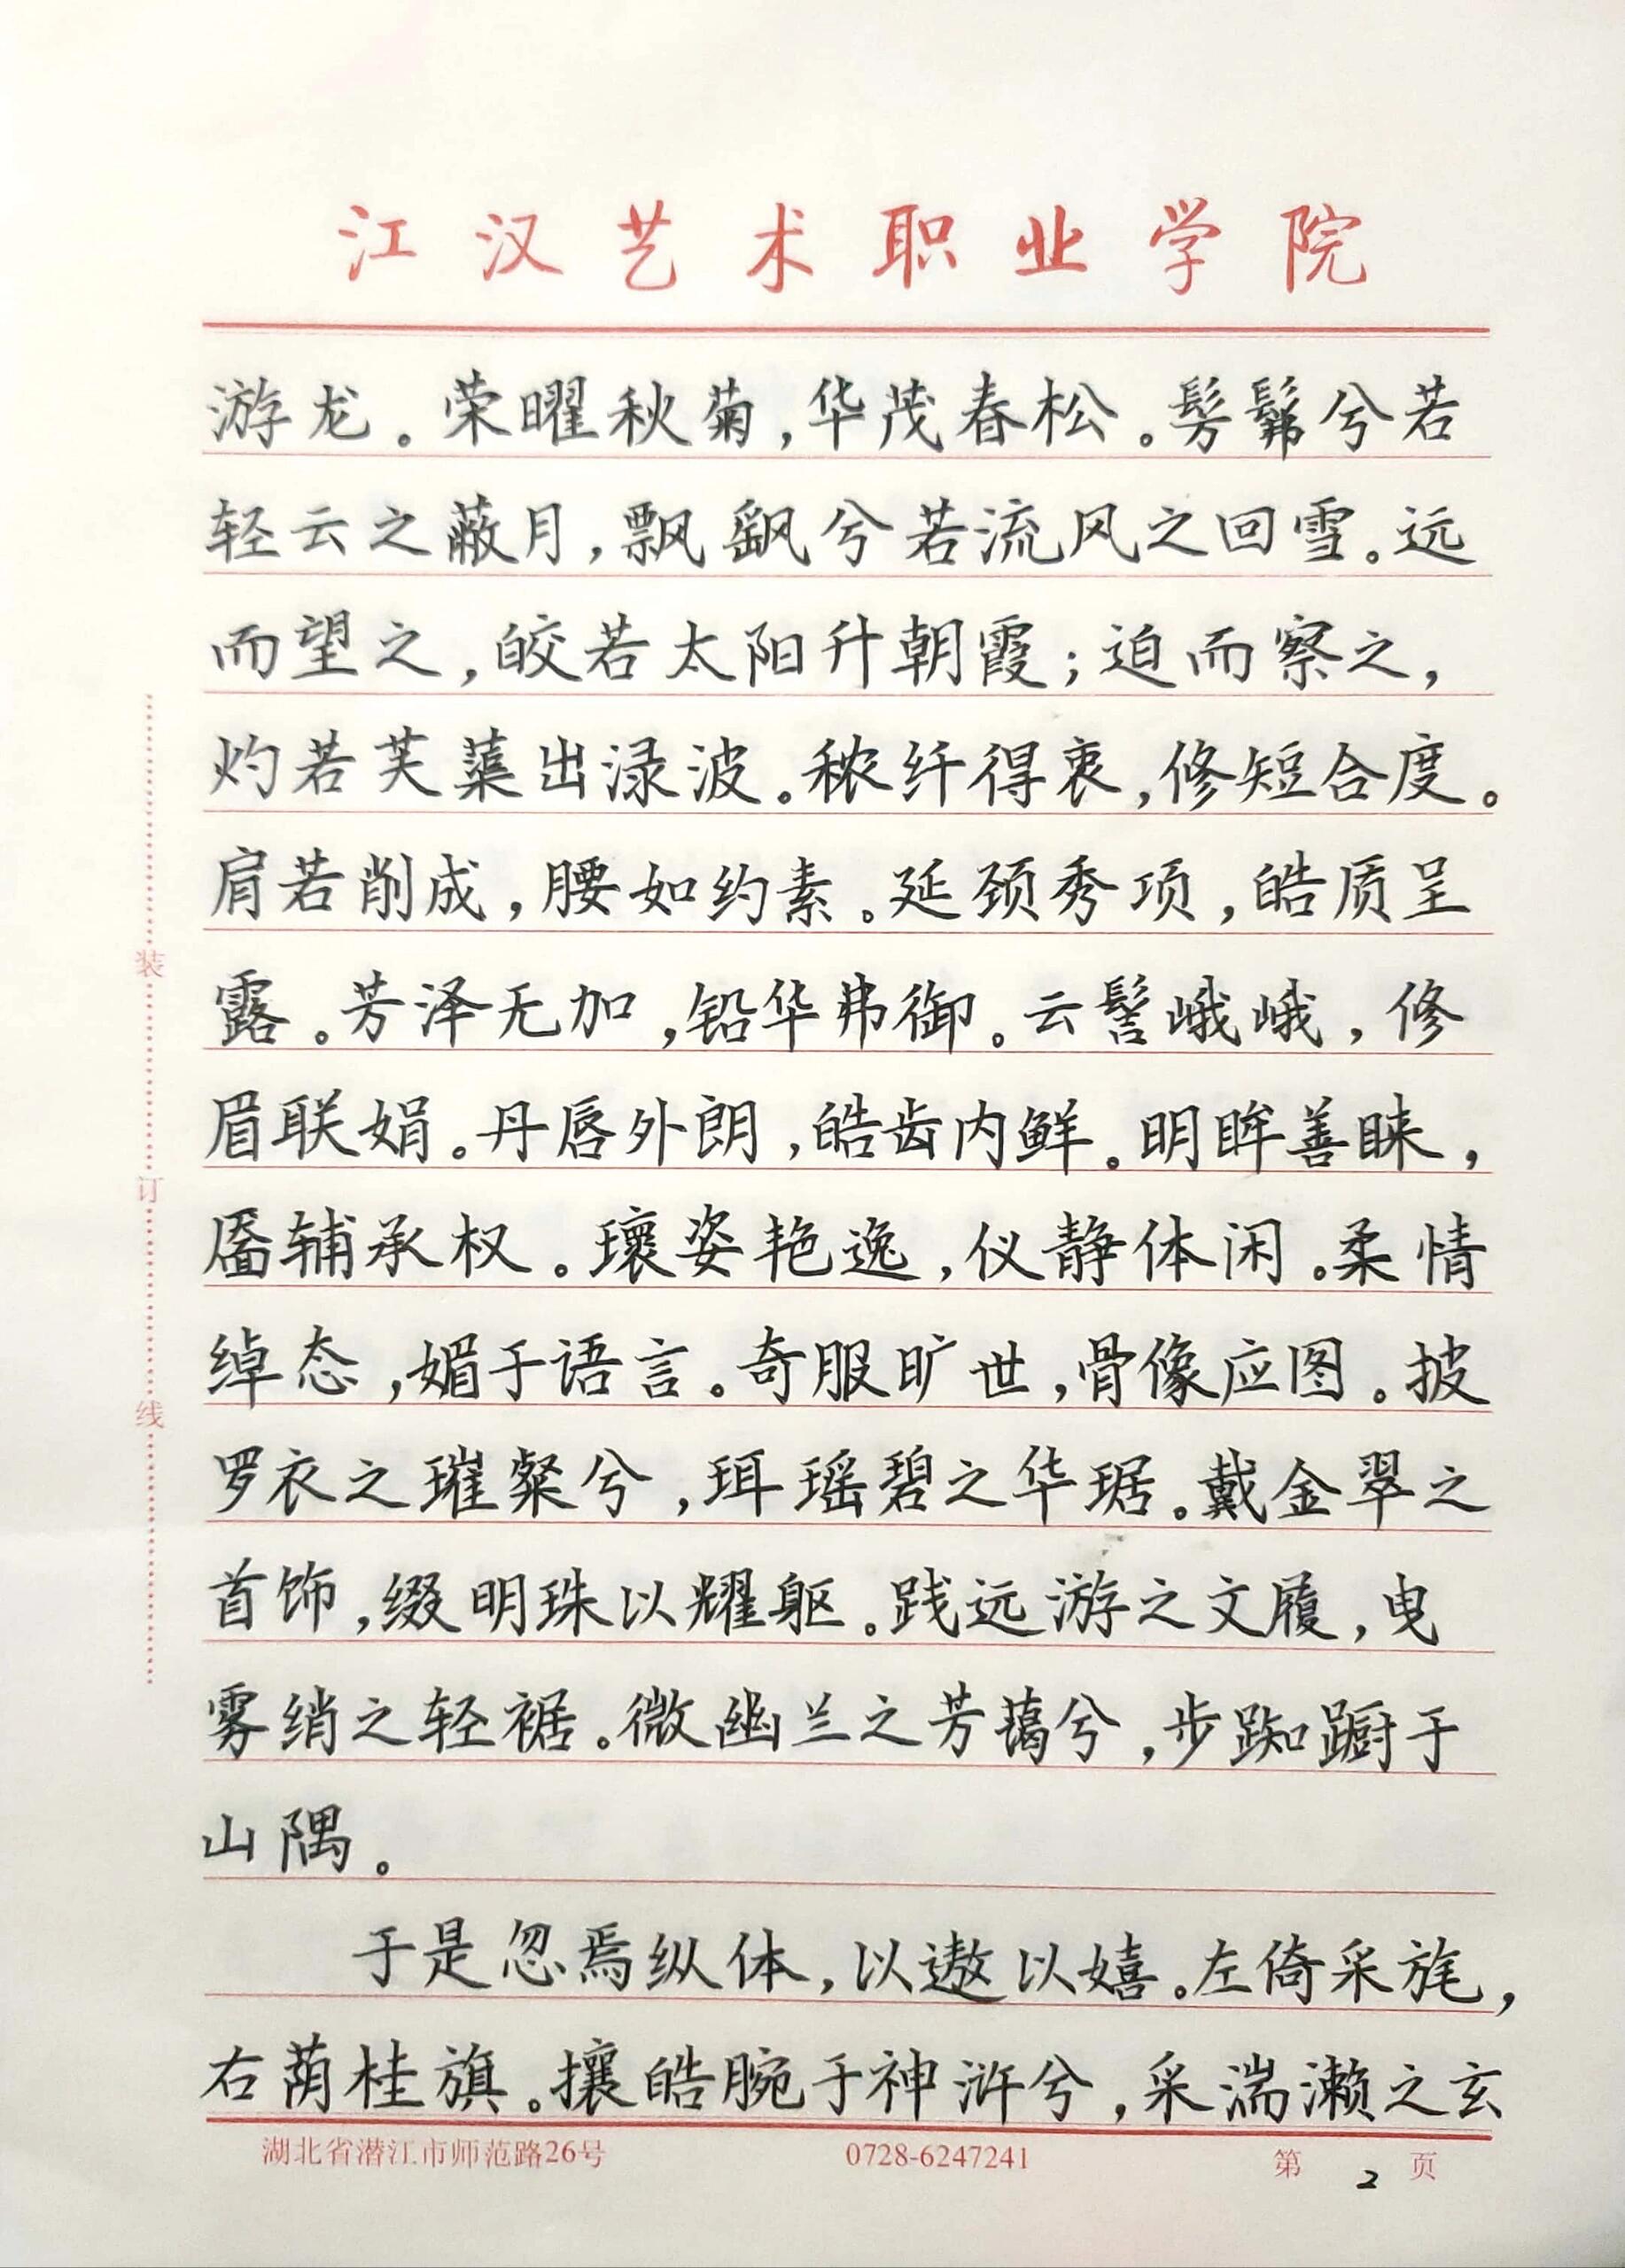 江汉艺术职业学院
游龙。荣曜秋菊，华茂春松。髣髴兮若
轻云之蔽月，飘飖兮若流风之回雪。远
而望之，皎若太阳升朝霞；迫而察之，
灼若芙蕖出渌波。秾纤得衷，修短合度。
肩若削成，腰如约素。延颈秀项，皓质呈
露。芳泽无加，铅华弗御。云髻峨峨，修
眉联娟。丹唇外朗，皓齿内鲜。明眸善睐，
靥辅承权。瓌姿艳逸，仪静体闲。柔情
绰态，媚于语言。奇服旷世，骨像应图。披
罗衣之璀粲兮，珥瑶碧之华琚。戴金翠之
首饰，缀明珠以耀躯。践远游之文履，曳
雾绡之轻裾。微幽兰之芳蔼兮，步踟蹰于
山隅。
于是忽焉纵体，以遨以嬉。左倚采旄，
右荫桂旗。攘皓腕于神浒兮，采湍濑之玄
装
订
线
湖北省潜江市师范路26号 0728-6247241 第 2 页